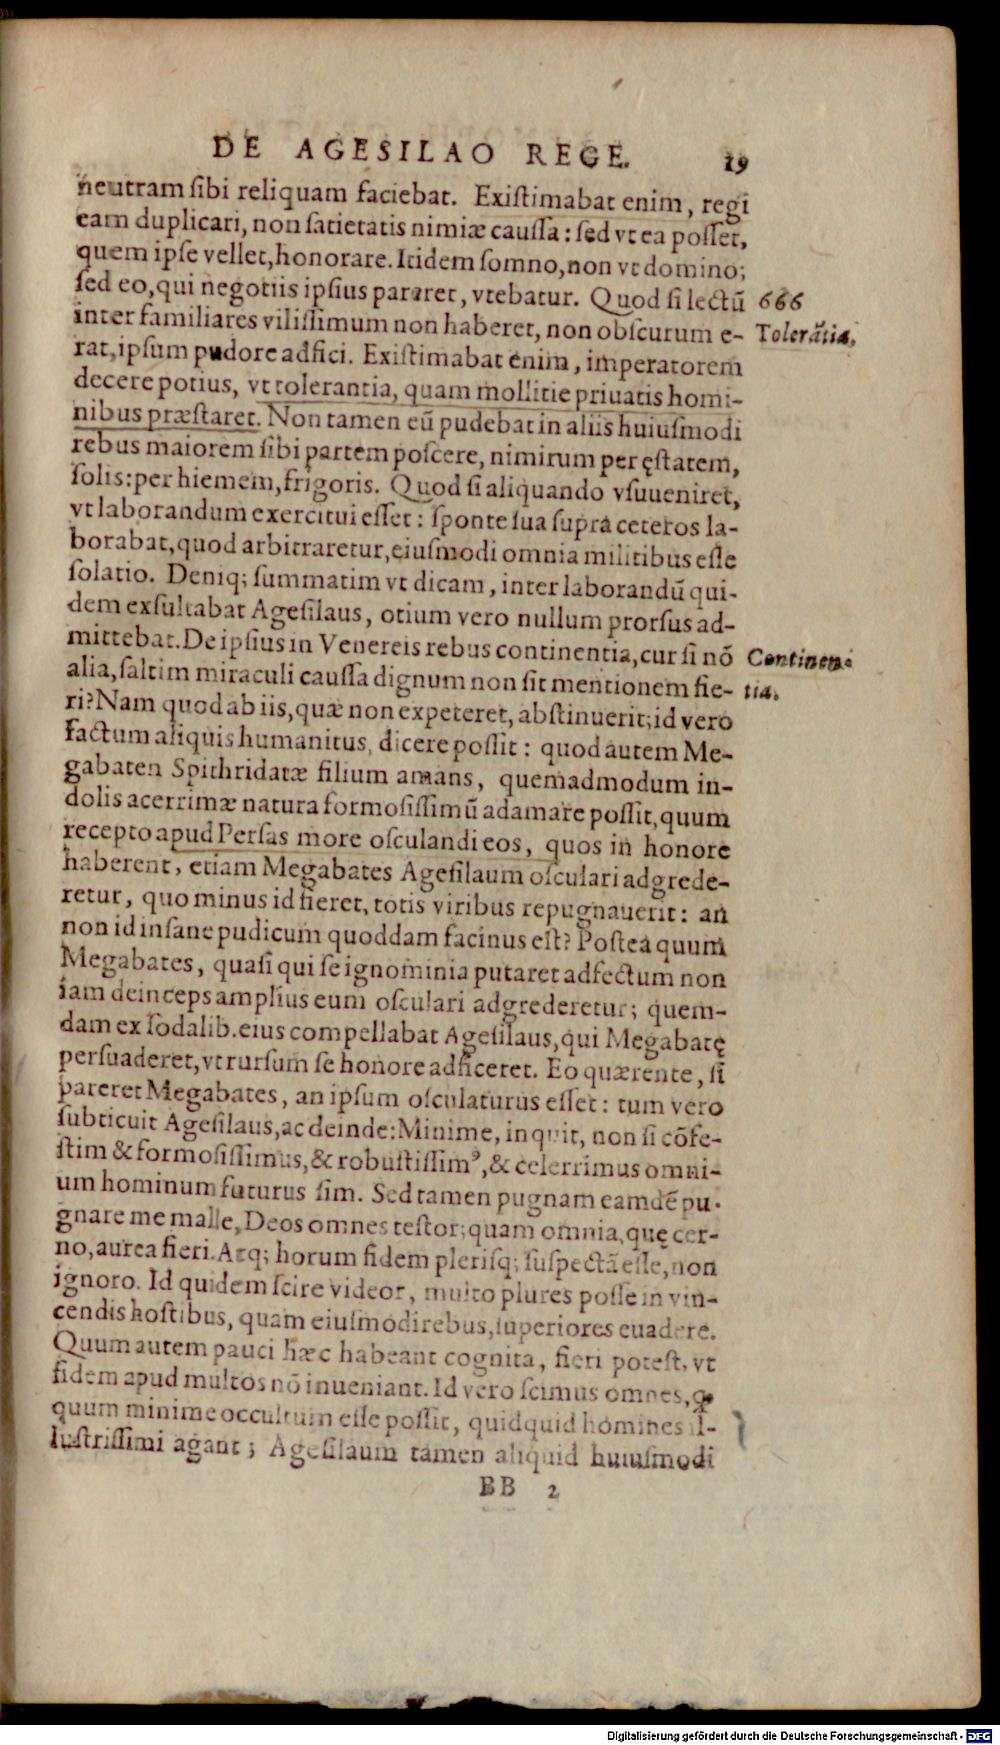 DE AGESILAO REGE. 19
neutram sibi reliquam faciebat. Existimabat enim, regi
eam duplicari, non satietatis nimiæ caussa: sed vt ea posset,
quem ipse vellet, honorare. Itidem somno, non vt domino;
sed eo, qui negotiis ipsius pareret, vtebatur. Quod si lectū 666
inter familiares vilissimum non haberet, non obscurum e- Tolerātia.
rat, ipsum pudore adfici. Existimabat enim, imperatorem
decere potius, vt tolerantia, quam mollitie priuatis homi-
nibus præstaret. Non tamen eū pudebat in aliis huiusmodi
rebus maiorem sibi partem poscere, nimirum per ęstatem,
solis: per hiemem, frigoris. Quod si aliquando vsuueniret,
vt laborandum exercitui esset: sponte sua supra ceteros la-
borabat, quod arbitraretur, eiusmodi omnia militibus esse
solatio. Deniq; summatim vt dicam, inter laborandū qui-
dem exsultabat Agesilaus, otium vero nullum prorsus ad-
mittebat. De ipsius in Venereis rebus continentia, cur si nō Continen-
alia, saltim miraculi caussa dignum non sit mentionem fie- tia.
ri? Nam quod ab iis, quæ non expeteret, abstinuerit; id vero
factum aliquis humanitus, dicere possit: quod autem Me-
gabaten Spithridatæ filium amans, quemadmodum in-
dolis acerrimæ natura formosissimū adamare possit, quum
recepto apud Persas more osculandi eos, quos in honore
haberent, etiam Megabates Agesilaum osculari adgrede-
retur, quo minus id fieret, totis viribus repugnauerit: an
non id insane pudicum quoddam facinus est? Postea quum
Megabates, quasi qui se ignominia putaret adfectum non
iam deinceps amplius eum osculari adgrederetur; quem-
dam ex sodalib. eius compellabat Agesilaus, qui Megabatę
persuaderet, vt rursum se honore adficeret. Eo quærente, si
pareret Megabates, an ipsum osculaturus esset: tum vero
subticuit Agesilaus, ac deinde: Minime, inquit, non si cōfe-
stim & formosissimus, & robustissimꝰ, & celerrimus omni-
um hominum futurus sim. Sed tamen pugnam eamdē pu-
gnare me malle, Deos omnes testor; quam omnia, quę cer-
no, aurea fieri. Atq; horum fidem plerisq; suspectā esse, non
ignoro. Id quidem scire videor, multo plures posse in vin-
cendis hostibus, quam eiusmodi rebus, superiores euadere.
Quum autem pauci hæc habeant cognita, fieri potest, vt
fidem apud multos nō inueniant. Id vero scimus omnes, ꝙ
quum minime occultum esse possit, quidquid homines il-
lustrissimi agant; Agesilaum tamen aliquid huiusmodi
BB 2
Digitalisierung gefördert durch die Deutsche Forschungsgemeinschaft - DFG